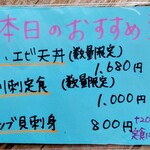 本日のおすすめ
エビ天丼 (数量限定)
1,680円
刺定食 (数量限定)
1,000円
ップ貝刺身 800円
+20
定食に